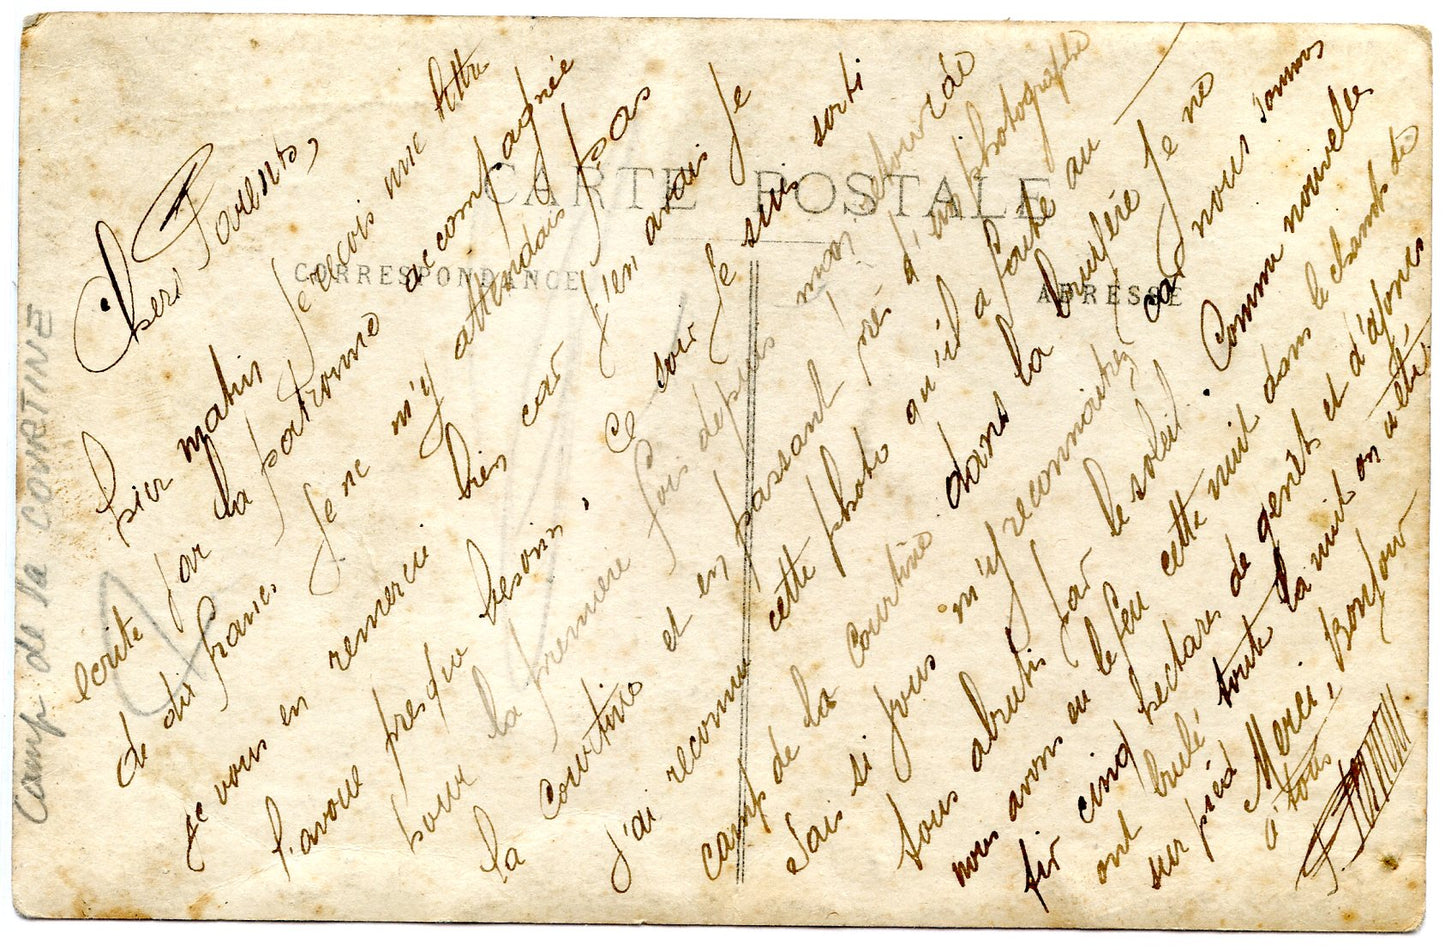 CARTE POSTALE
CORRESPONDANCE
ADRESSE
Camp de la COURTINE
Chers Parents,
hier matin je reçois une lettre
ecrite par la patronne accompagnée
de dix francs. Je ne m'y attendais pas
je vous en remercie bien car j'en avais je
l'avoue presque besoin. Ce soir je suis sorti
pour la première fois depuis mon
la courtine et en passant près d'un photographe
j'ai reconnu cette photo qu'il a faite au
camp de la courtine dans la bruyére je ne
sais si vous m'y reconnaitrez car nous sommes
tous abrutis par le soleil. Comme nouvelles
nous avons eu le feu cette nuit dans le champs de
tir cinq hectares de genêts et d'ajoncs
ont brulé toute la nuit on a été
sur pied Merci, Bonjour
à tous